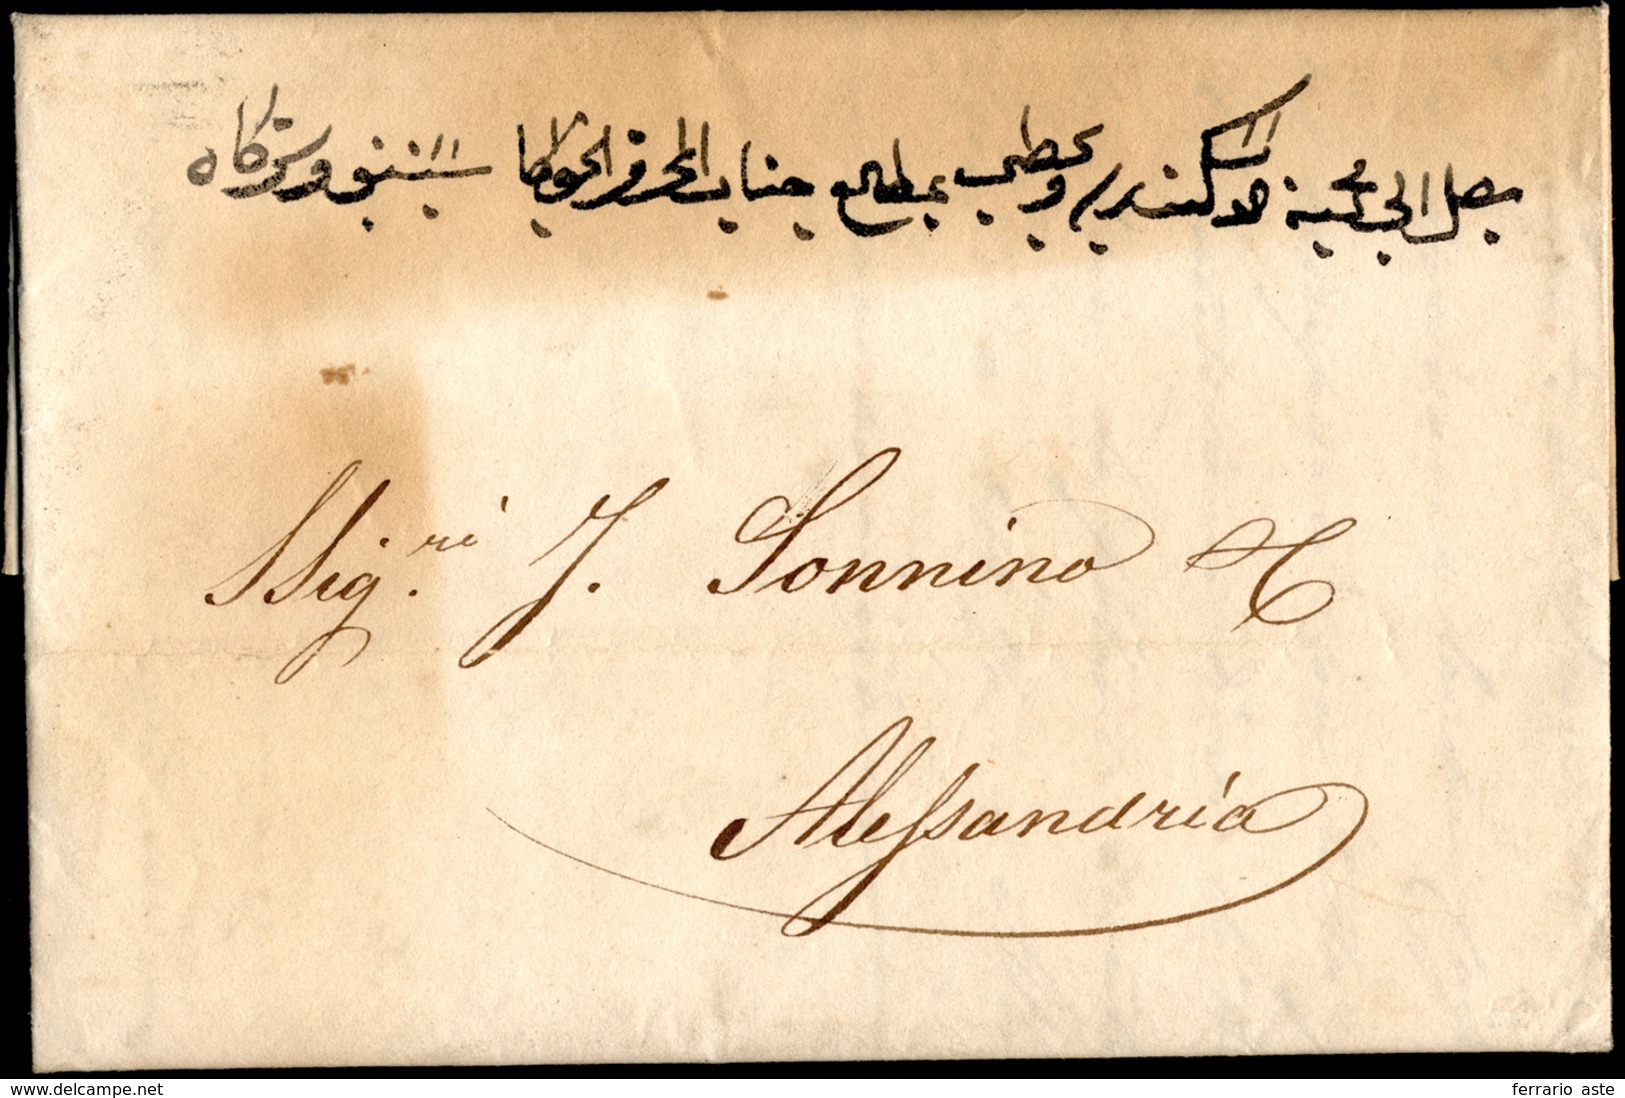 يصل الى محمية الاسكندرية ويحظى بمطالع جناب الخواجا سننينو وشركاه
SSig.ri J. Sonnino & C
Alessandria
www.delcampe.net
ferrario aste